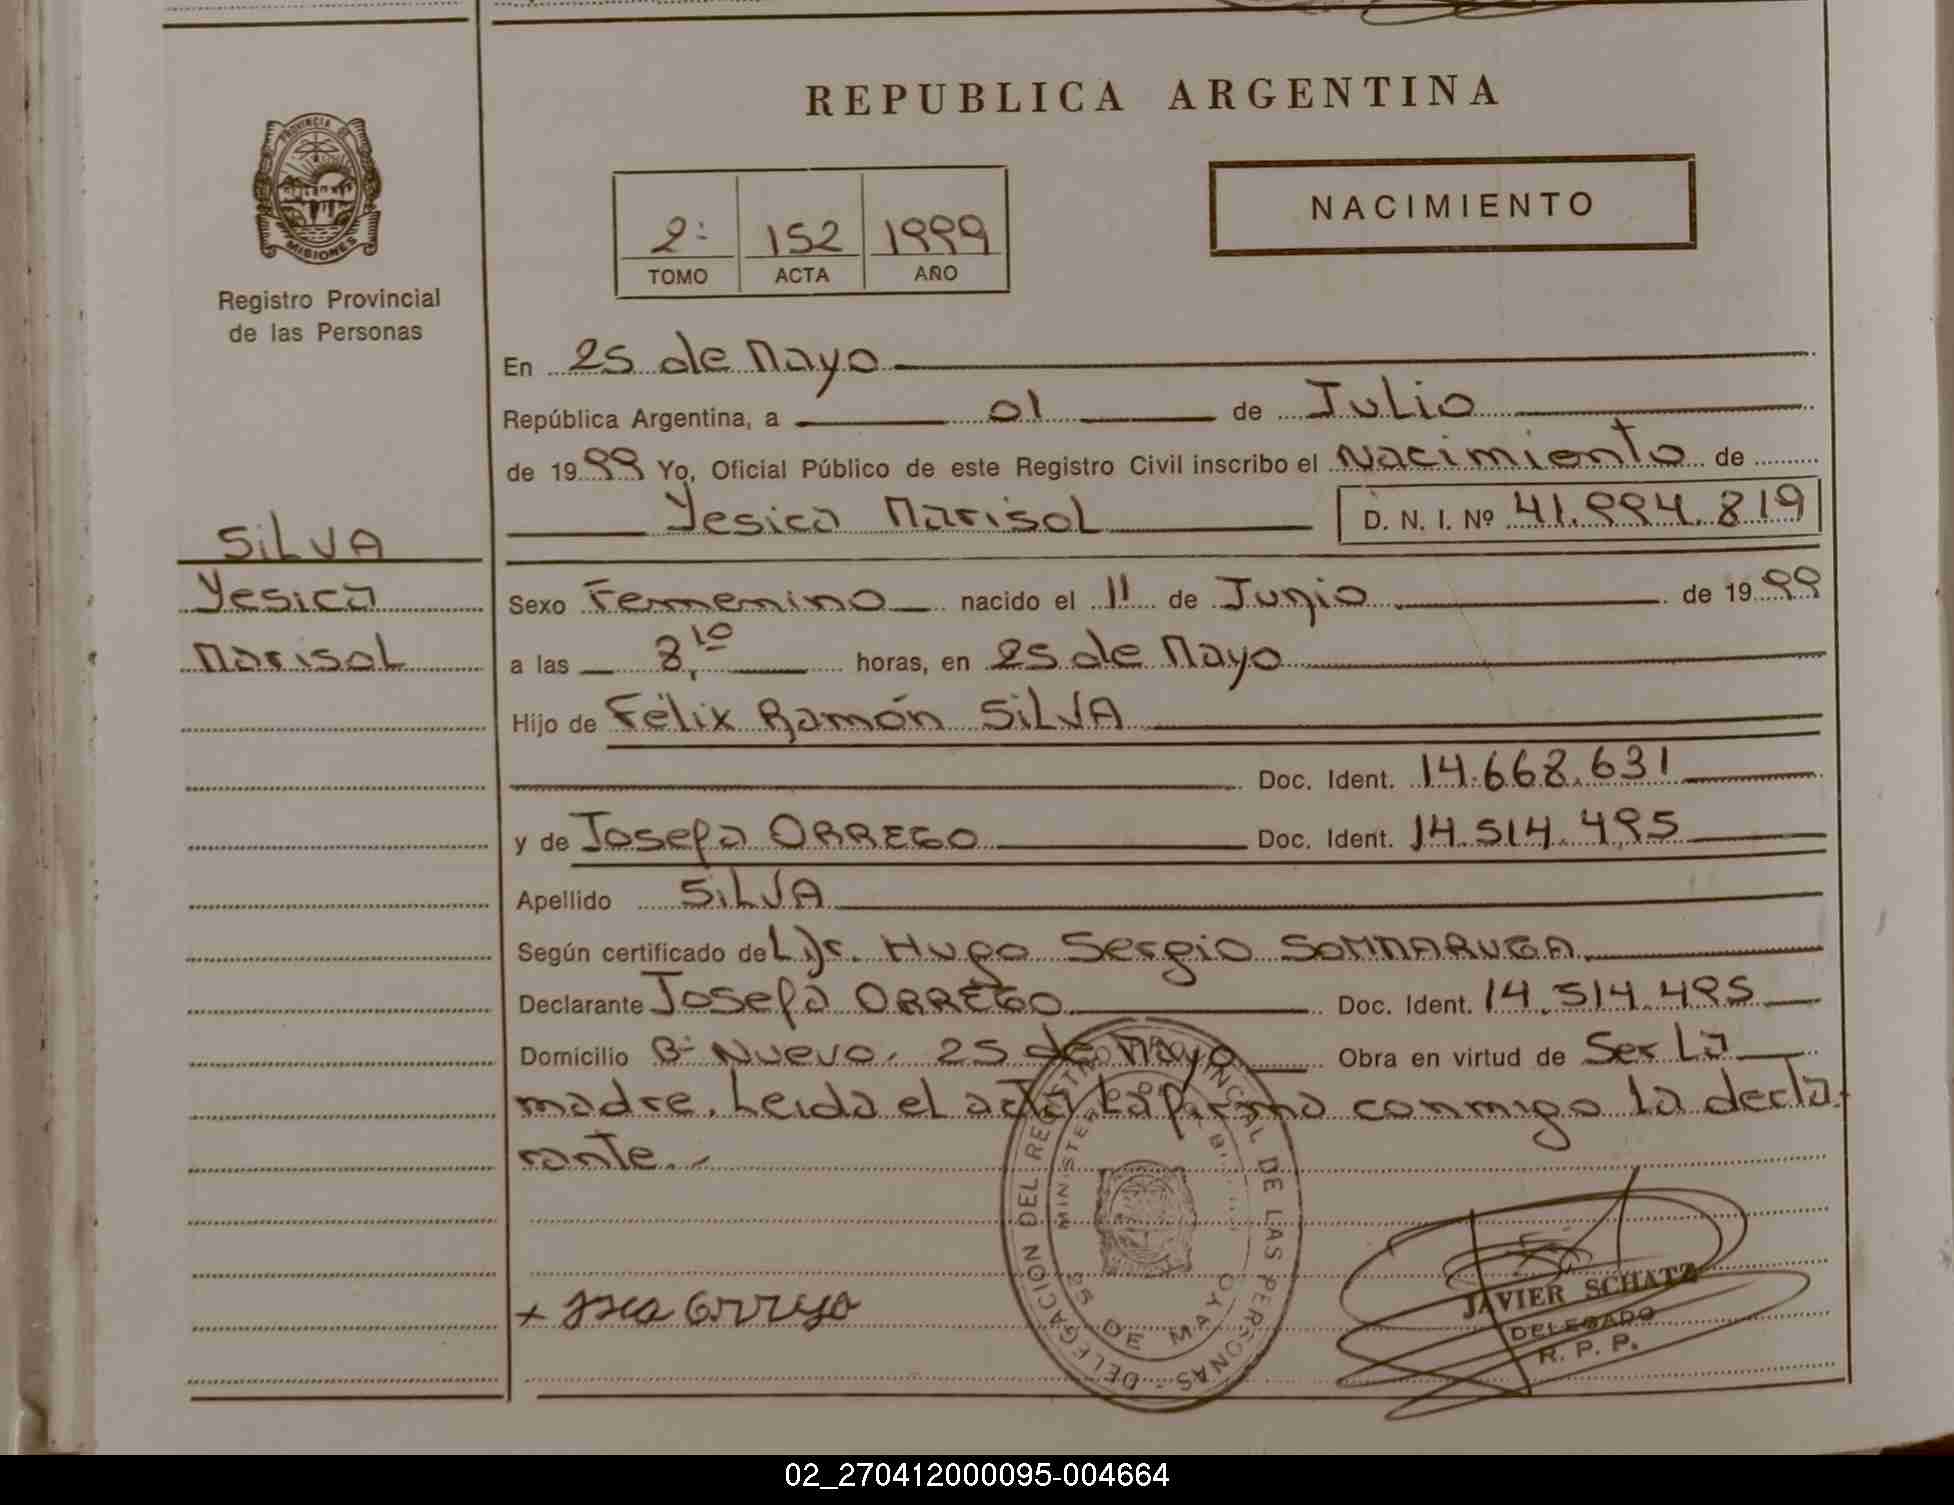 REPUBLICA ARGENTINA
PROVINCIA DE
MISIONES
Registro Provincial
de las Personas
NACIMIENTO
2º 152 1999
TOMO ACTA AÑO
En 25 de Mayo
República Argentina, a 01 de Julio
de 1999 Yo, Oficial Público de este Registro Civil inscribo el Nacimiento de
Yesica Marisol D. N. I. Nº 41.994.819
SiLVA
Yesica
Marisol
Sexo Femenino nacido el 11 de Junio de 1999
a las 8,10 horas, en 25 de Mayo
Hijo de Félix Ramón SiLVA
Doc. Ident. 14.668.631
y de Josefa ORREGO Doc. Ident. 14.514.495
Apellido SiLVA
Según certificado de L Dr. Hugo Sergio SOMMARUGA
Declarante Josefa ORREGO Doc. Ident. 14.514.495
Domicilio Bº Nuevo. 25 de Mayo Obra en virtud de Ser La
madre. Leida el acta La firma conmigo la decla-
rante.-
DELEGACION DEL REGISTRO PROVINCIAL DE LAS PERSONAS -
25 DE MAYO
JAVIER SCHATZ
DELEGADO
R. P. P.
02_270412000095-004664